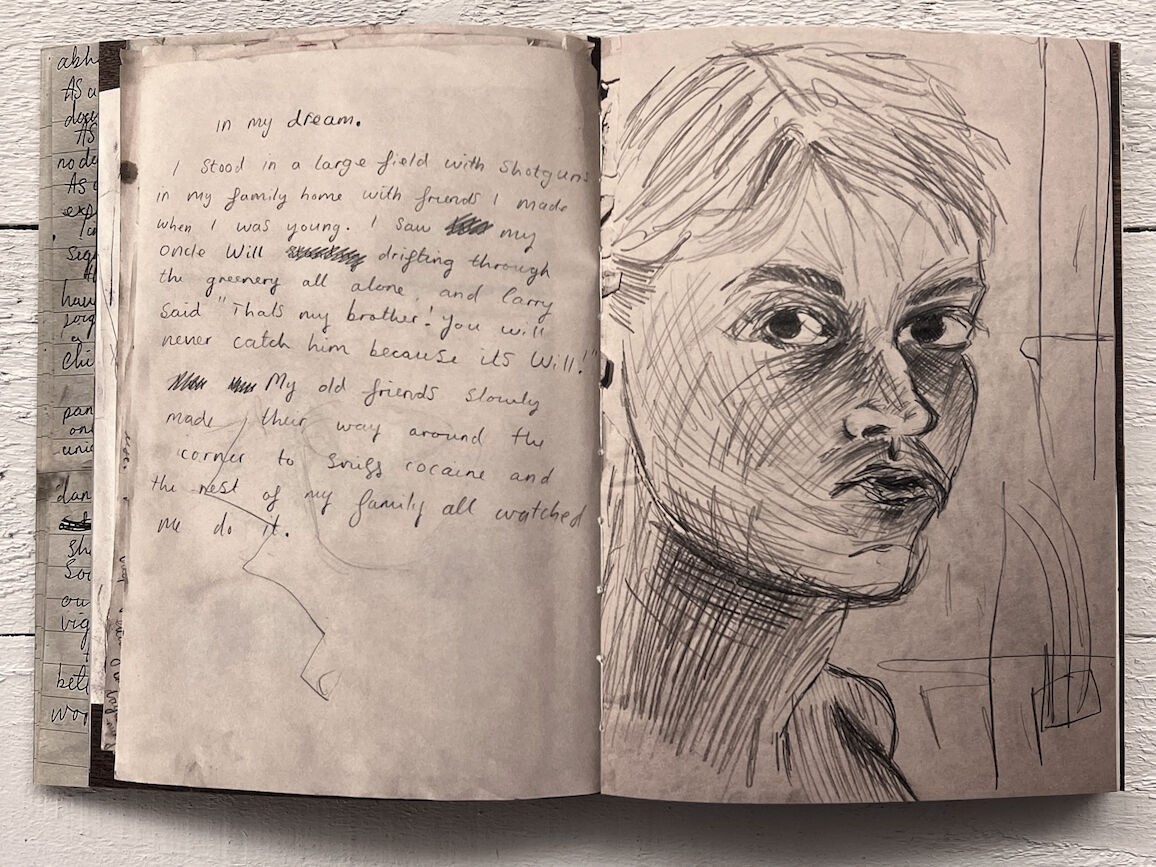 in my dream.
I stood in a large field with shotguns
in my family home with friends I made
when I was young. I saw my
oncle Will drifting through
the greenery all alone, and larry
said "Thats my brother! you will
never catch him because its Will!"
My old friends slowly
made their way around the
corner to sniff cocaine and
the rest of my family all watched
me do it.